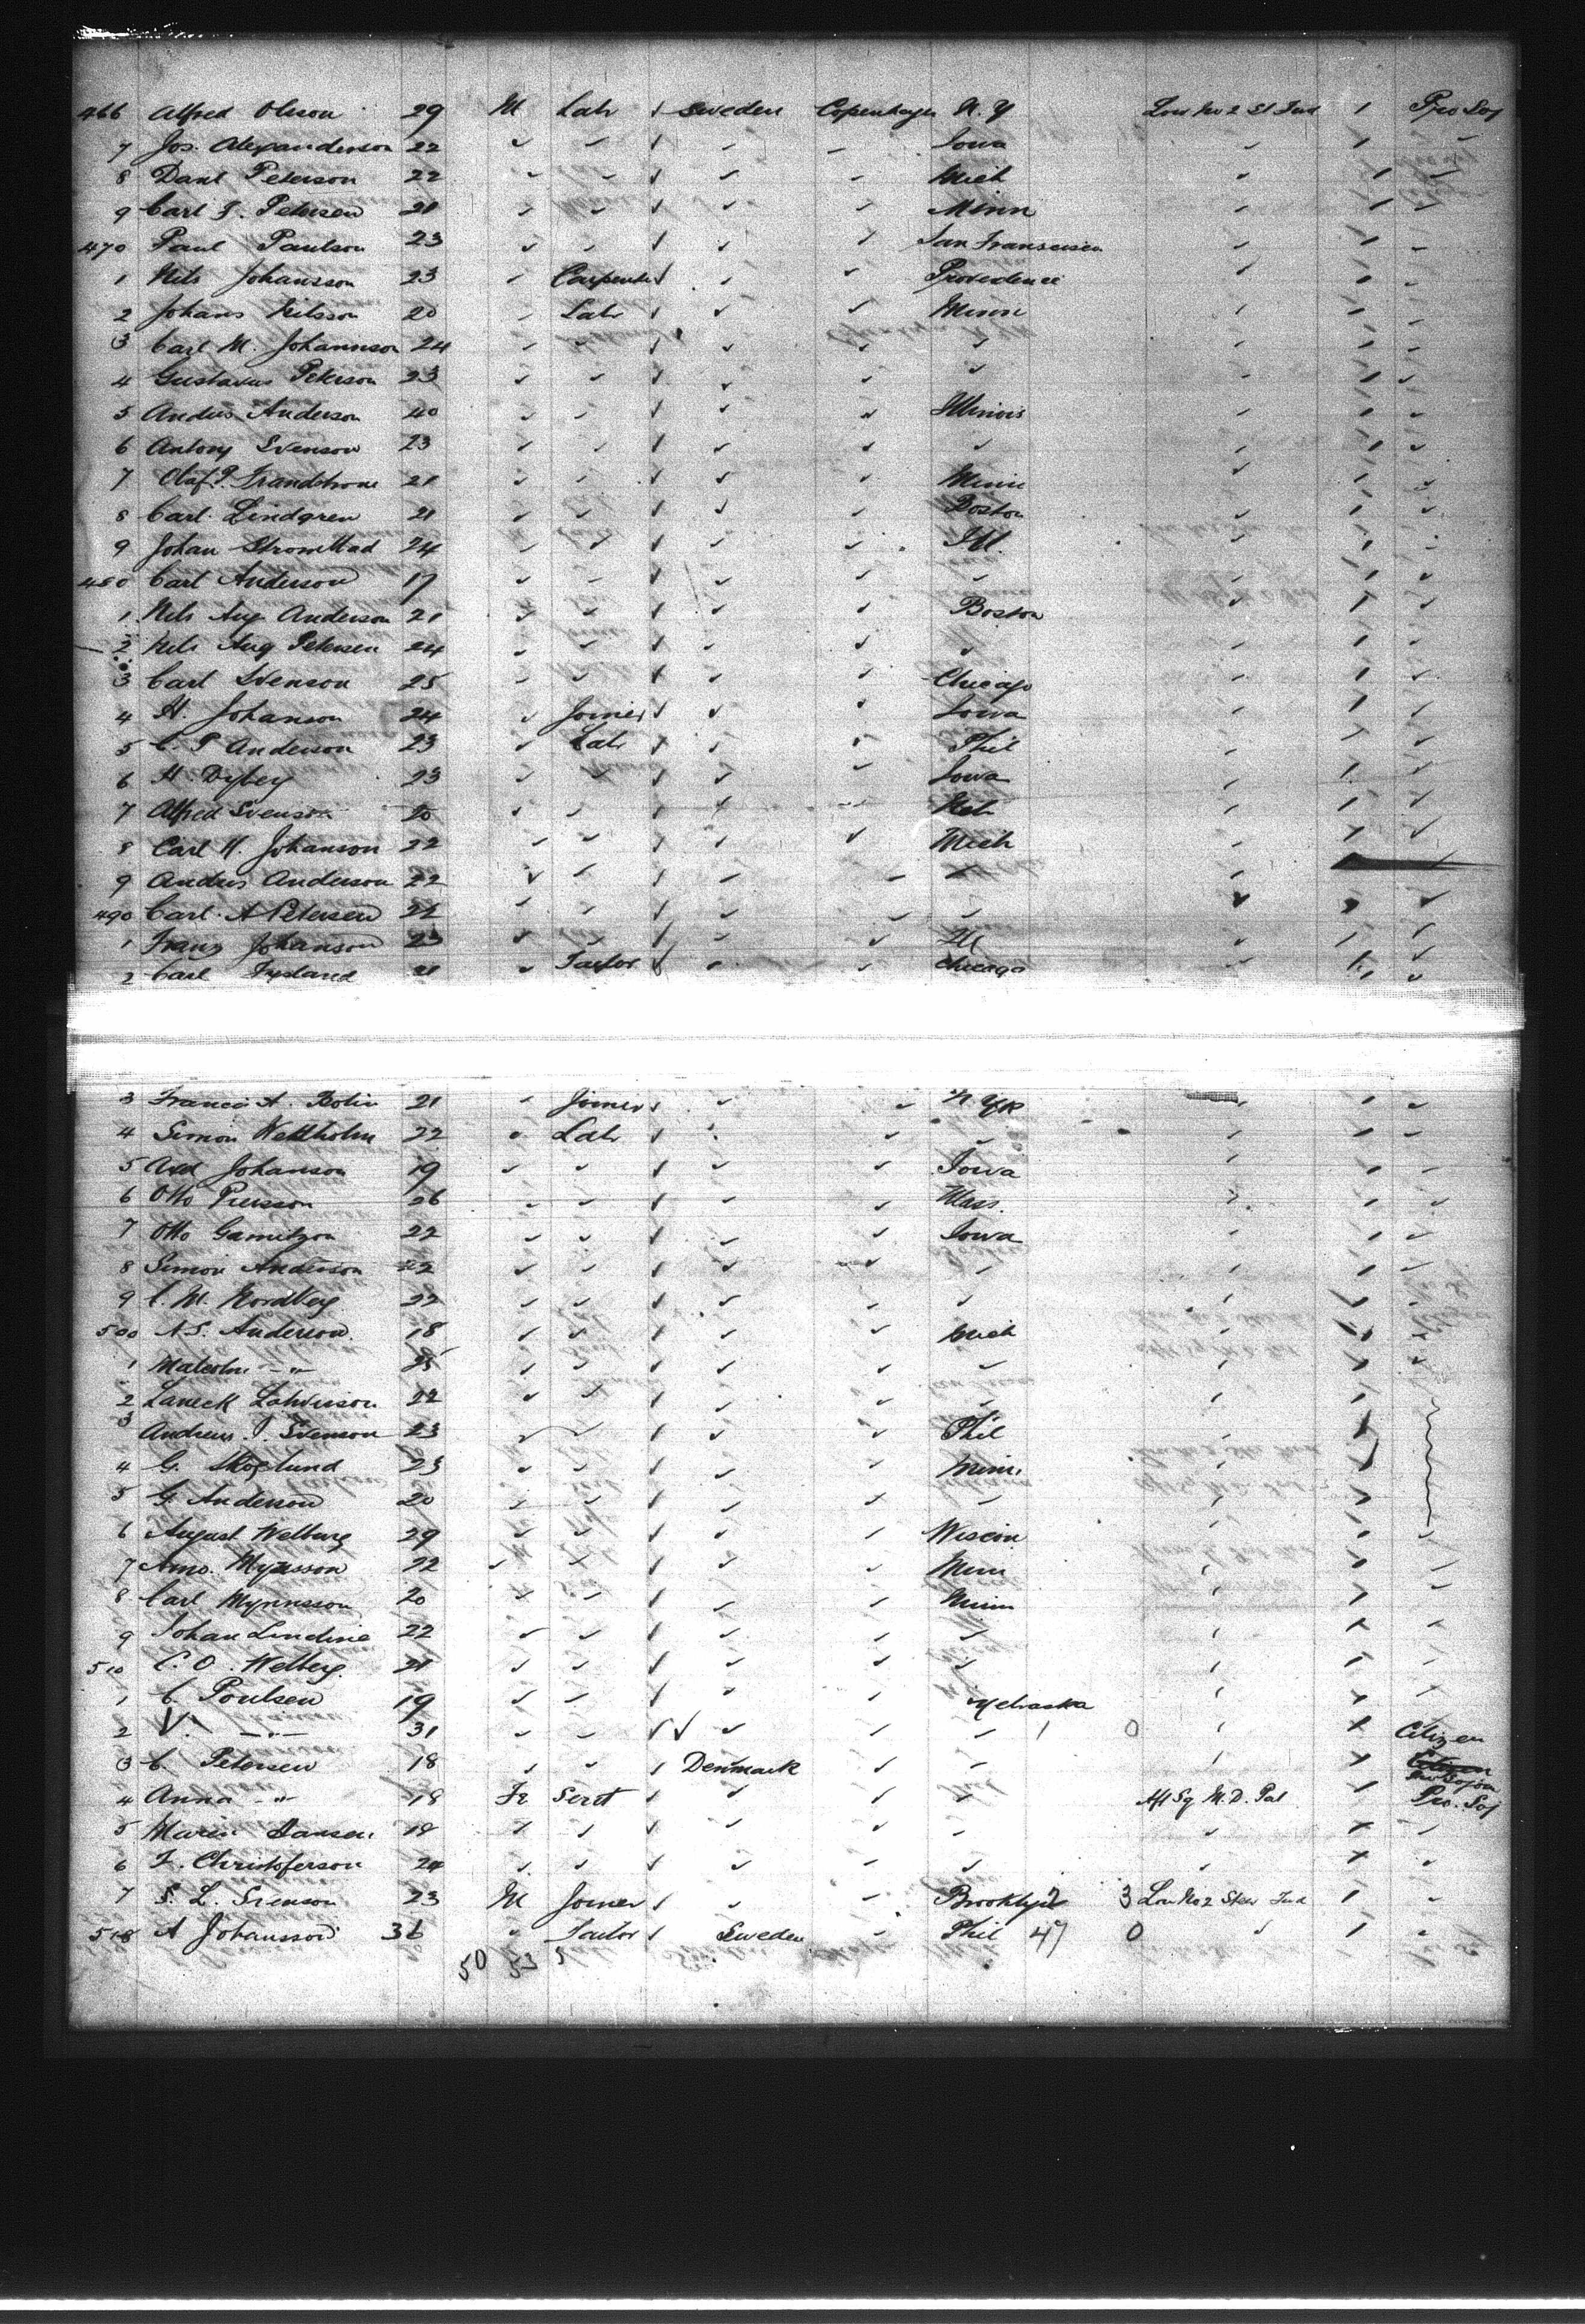 466 Alfred Olsson 29 M Labr Sweden Copenhagen N. Y Low No 2 St Ind 1 Pro Soj
7 Jos. Alexanderson 22 Iowa
8 Danl Peterson 22 Mich
9 Carl F. Petersen 21 Minn
470 Paul Paulson 23 San Franscisco
1 Nils Johansson 23 Carpenter Providence
2 Johans Nilsson 20 Labr Minn
3 Carl M. Johannson 24
4 Gustavus Peterson 23
5 Andus Anderson 40 Illinois
6 Antony Svenson 23
7 Olaf P. 21 Minn
8 Carl Lindgren 21 Boston
9 Johan 24 Ill.
480 Carl Anderson 17
1 Nels Aug Anderson 21 Boston
2 Nels Aug Petersen 24
3 Carl Svenson 25 Chicago
4 H. Johanson 24 Joiner Iowa
5 C. P Anderson 23 Labr Phil
6 H. Dyberg 23 Iowa
7 Alfred Svenson 20 Neb
8 Carl H. Johanson 22 Mich
9 Andrus Anderson 22
490 Carl A Petersen 22
1 Franz Johanson 23 Ill
2 Carl 21 Taylor Chicago
3 Francis A. Bolin 21 Joiner N. Yk
4 Simon 22 Labr
5 Axel Johanson 19 Iowa
6 Otto Piersson 26 Mass.
7 Otto 22 Iowa
8 Simon Anderson 22
9 C. M. Nordberg 22
500 N S. Anderson 18 Mich
1 Malcolm -"- 25
2 22
3 Andrew J. Svenson 23 Phil
4 G. Skoglund 23 Minn.
5 G. Anderson 20
6 August Welburg 29 Wiscon
7 22 Minn
8 Carl Mynnsson 20 Minn
9 Johan 22
510 C. O. Welberg 21
1 C. Poulsen 19 Nebraska
2 V. -"- 31 0 Citizen
3 C. Petersen 18 Denmark
4 Anna -"- 18 Fe Servt Aft Sg M. D. Pro. Soj
5 Marie Hansen 18
6 F. Christoferson 24
7 S. L. Svenson 23 M Joiner Brooklyn 3 Low No 2 Ind 1
518 A Johansson 36 Taylor Sweden Phil 47 0 1
50 53